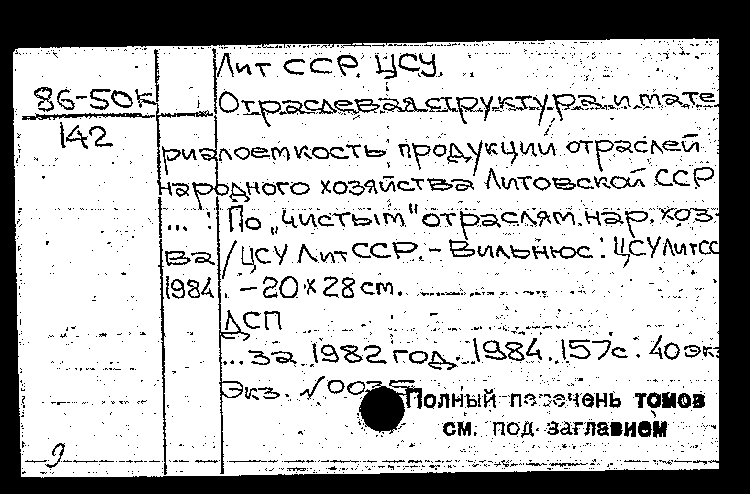 Лит ССР. ЦСУ.
86-50к Отраслевая структура и мате
142
риалоемкость продукции отраслей
народного хозяйства Литовской ССР
... : По „чистым" отраслям нар. хоз-
ва / ЦСУ ЛитССР. - Вильнюс : ЦСУЛитСС
1984. - 20 × 28 cm.
ДСП
... за 1982 год. 1984. 157с. 40 экз
Экз. №0035
Полный перечень томов
см. под заглавием
9